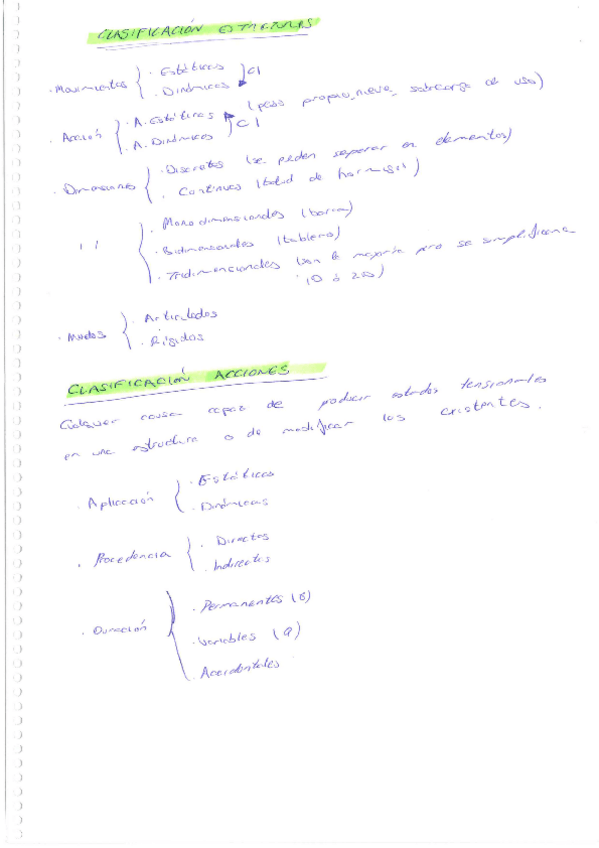 CLASIFICACIÓN ESTRUCTURAS
· Movimientos { · Estáticas ] CI
· Dinámicas
· Acción { · A. Estáticas (peso propio, nieve, sobrecarga de uso)
· A. Dinámicas ] CI
· Dimensiones { · Discretas (se pueden separar en elementos)
· Continuas (balsa de hormigón)
" { · Monodimensionales (barra)
· Bidimensionales (tablero)
· Tridimensionales (son la mayoría pero se simplifican a
1D ó 2D)
· Nudos { · Articulados
· Rígidos
CLASIFICACIÓN ACCIONES
Cualquier causa capaz de producir estados tensionales
en una estructura o de modificar los existentes.
· Aplicación { · Estáticas
· Dinámicas
· Procedencia { · Directas
· Indirectas
· Duración { · Permanentes (G)
· Variables (Q)
· Accidentales